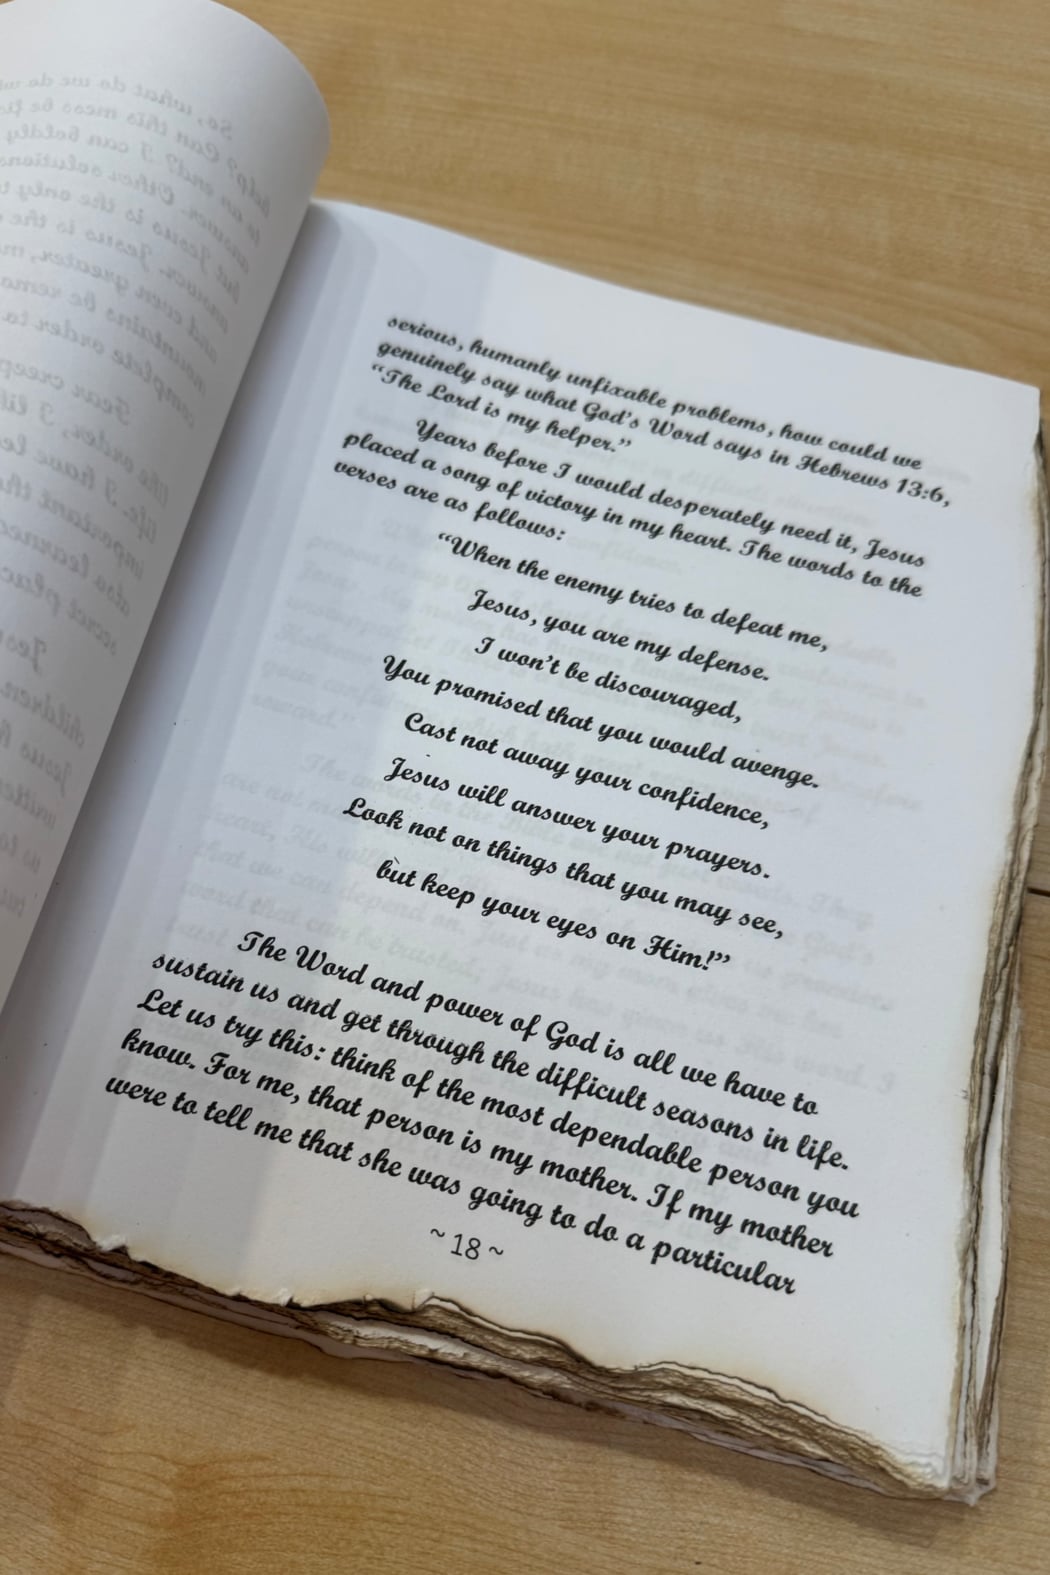 serious, humanly unfixable problems, how could we
genuinely say what God's Word says in Hebrews 13:6,
"The Lord is my helper."
Years before I would desperately need it, Jesus
placed a song of victory in my heart. The words to the
verses are as follows:
"When the enemy tries to defeat me,
Jesus, you are my defense.
I won't be discouraged,
You promised that you would avenge.
Cast not away your confidence,
Jesus will answer your prayers.
Look not on things that you may see,
but keep your eyes on Him!"
The Word and power of God is all we have to
sustain us and get through the difficult seasons in life.
Let us try this: think of the most dependable person you
know. For me, that person is my mother. If my mother
were to tell me that she was going to do a particular
~ 18 ~